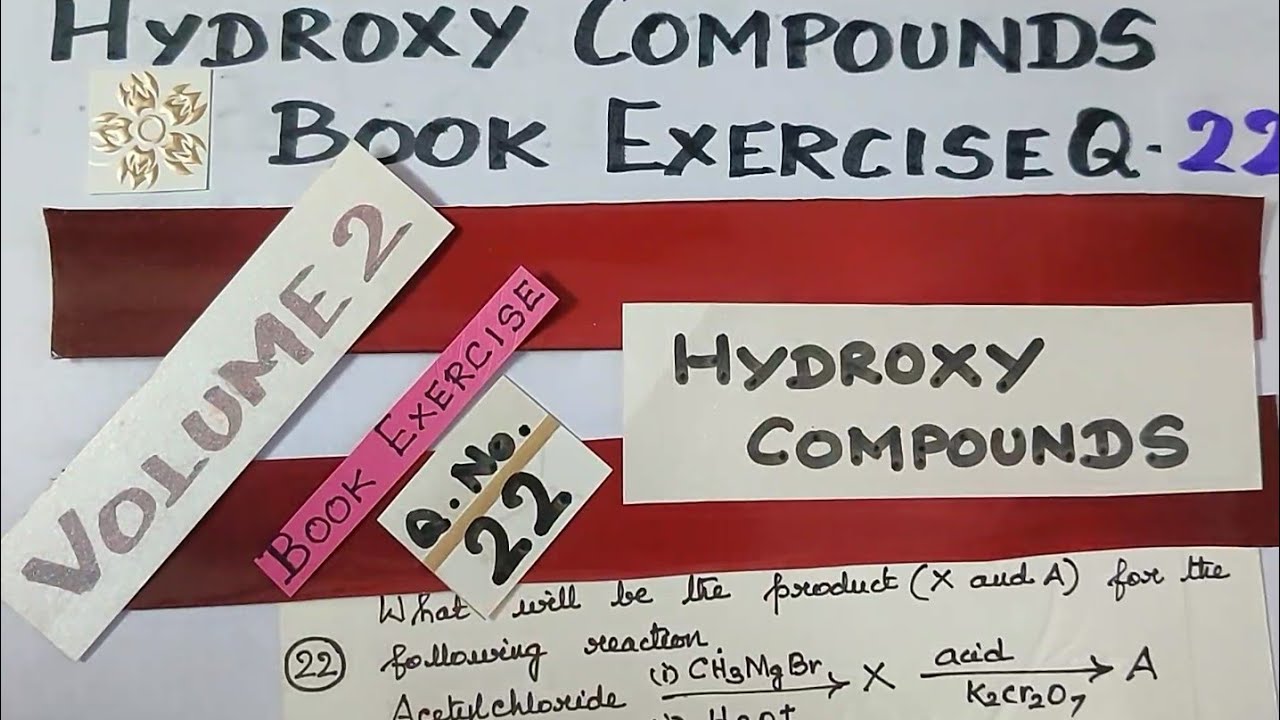 HYDROXY COMPOUNDS
BOOK EXERCISE Q. 22
VOLUME 2
BOOK EXERCISE
Q. No.
22
HYDROXY
COMPOUNDS
What will be the product (X and A) for the
22 following reaction.
Acetylchloride (i) CH3MgBr, X acid A
K2Cr2O7
H3O+